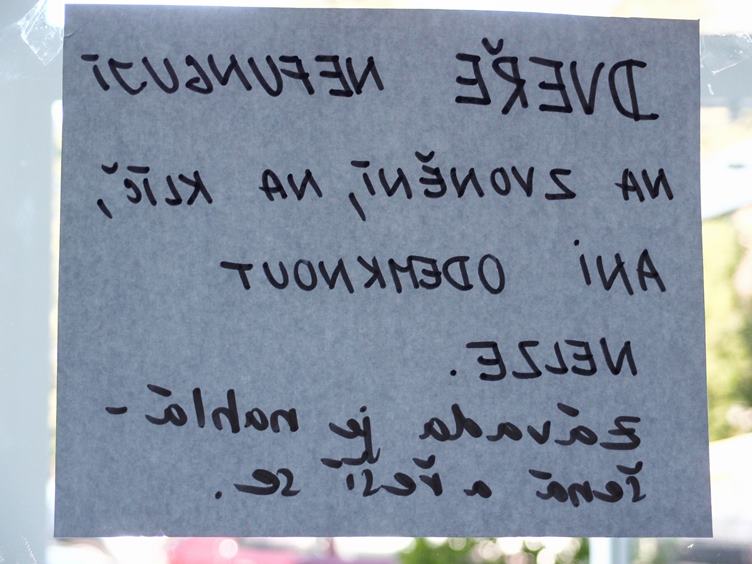 DVEŘE NEFUNGUJÍ
NA ZVONĚNÍ, NA KLÍČ,
ANI ODEMKNOUT
NELZE.
závada je nahlá-
šená a řeší se.